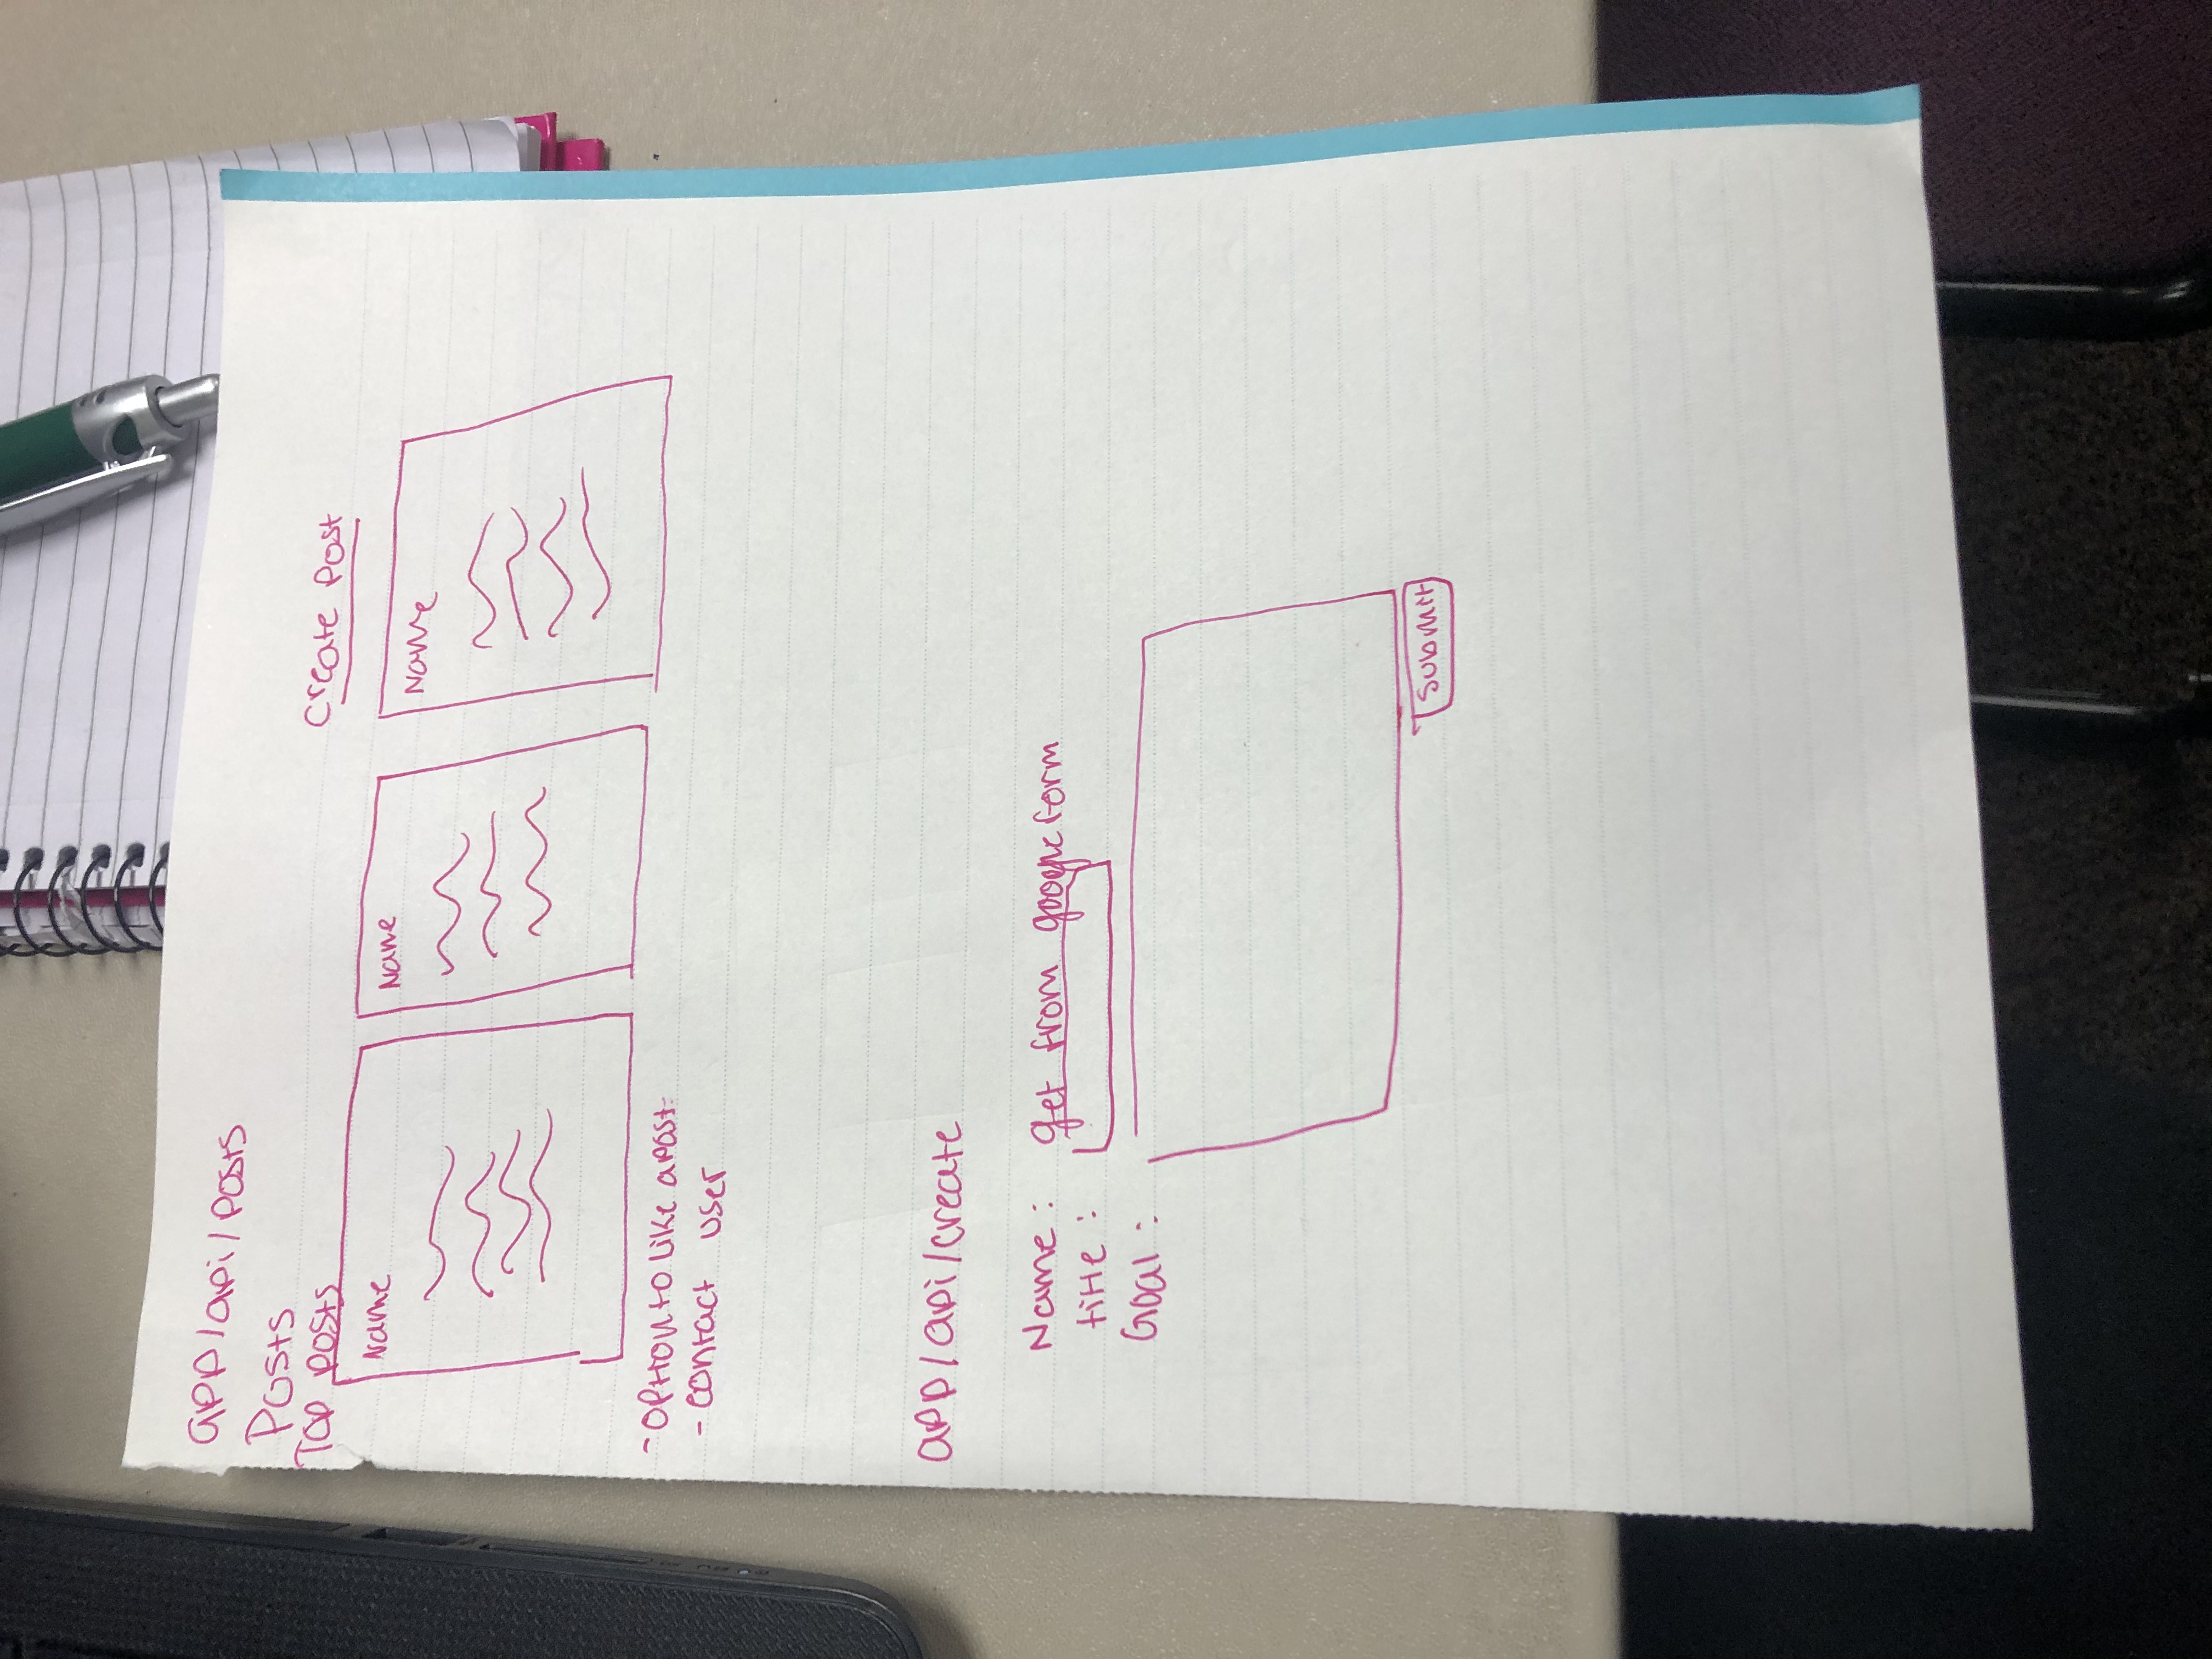 app/api/posts
Posts
Top posts
create post
Name
Name
Name
- option to like a post
- contact user
app/api/create
Name: get from google form
title:
Goal:
submit